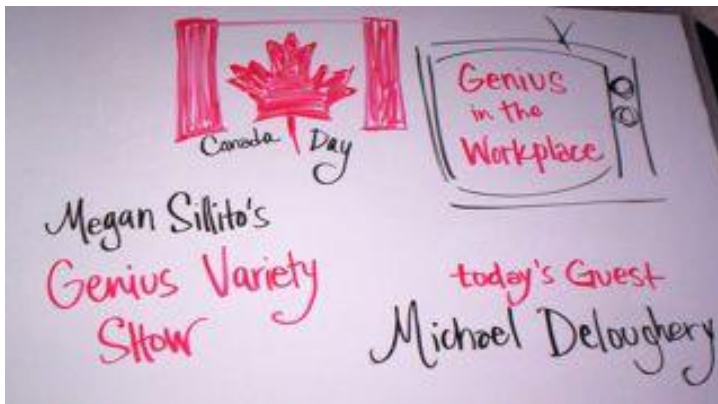 Canada Day
Genius
in the
Workplace
Megan Sillito's
Genius Variety
Show
today's Guest
Michael Deloughery